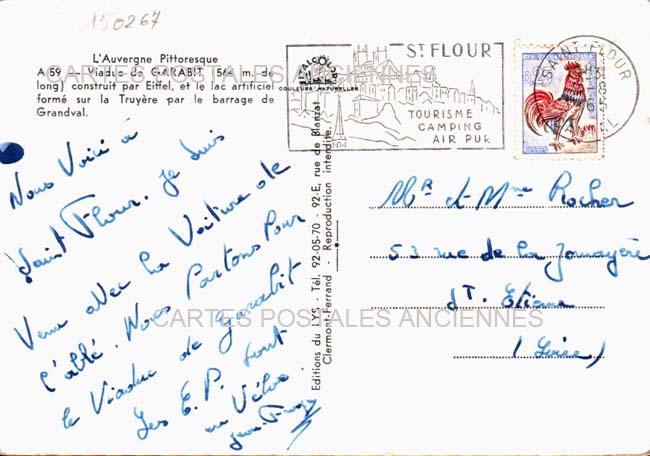 150267
L'Auvergne Pittoresque
A 59 - Viaduc de GARABIT (564 m. de
long) construit par Eiffel, et le lac artificiel
formé sur la Truyère par le barrage de
Grandval.
CARTES POSTALES ANCIENNES
Nous Voici à
Saint Flour. Je suis
Venu avec la Voiture de
l'abbé. Nous Partons Pour
le Viaduc de Garabit
Les E.P. sont
en Vélos.
Editions du LYS - Tél. 92-05-70 - 92-E, rue de Blanzat
Clermont-Ferrand - Reproduction interdite.
COULEURS NATURELLES
ST FLOUR
TOURISME
CAMPING
AIR PUR
SAINT-FLOUR
Mr et Mme Rocher
53 rue de la
St. Etienne
(Loire)
CARTES POSTALES ANCIENNES